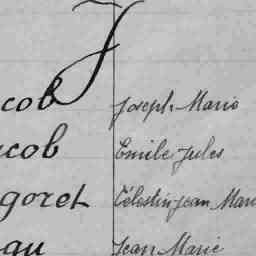 J
cob Joseph Marie
acob Emile Jules
goret Célestin Jean Mari
au Jean Marie